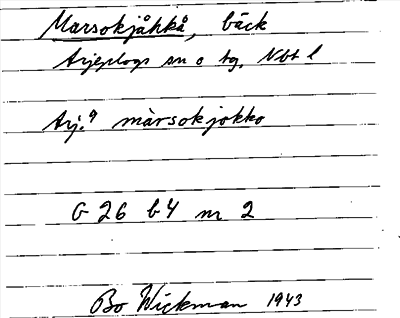 Marsokjåhkå, bäck
Arjeplogs sn o tg, Nbt l
Arj. 9 màrsokjokko
G 26 b 4 nr 2
Bo Wickman 1943